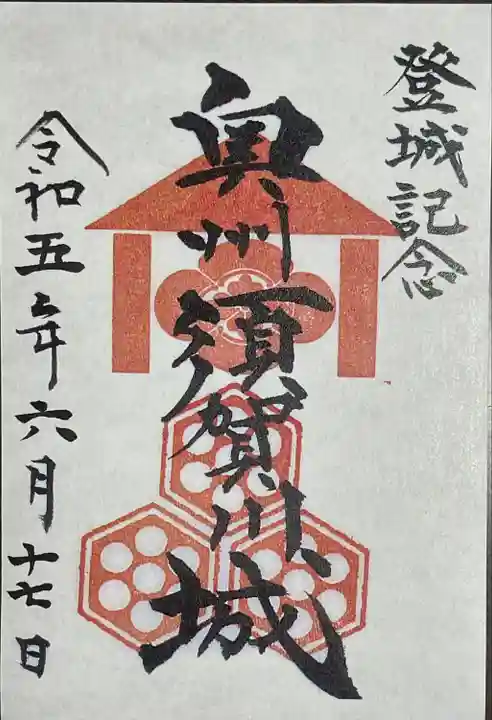 登城記念
奥州須賀川城
令和五年六月十七日